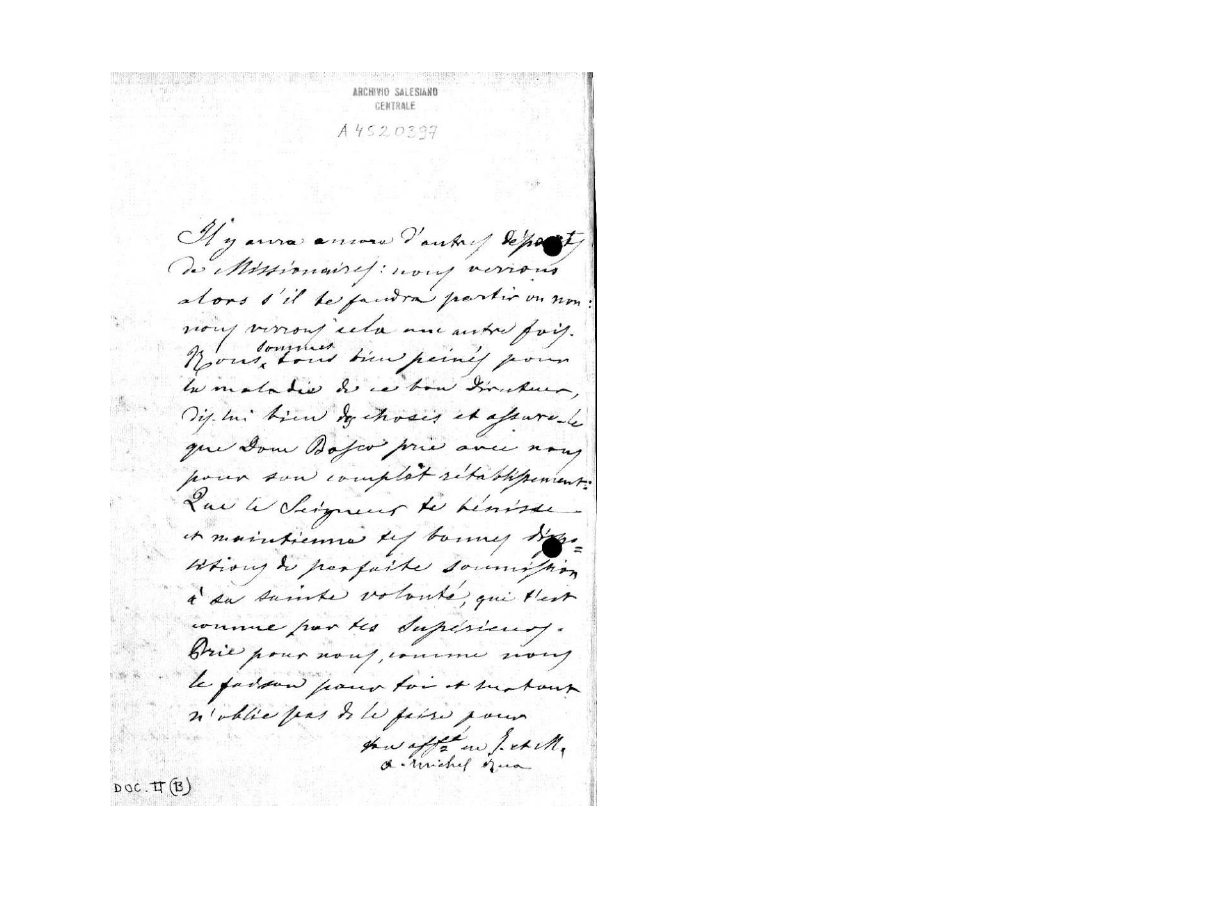 ARCHIVIO SALESIANO
CENTRALE
A4520397
Il y aura encore d'autres départs
de Missionaires: nous verrons
alors s'il te faudra partir ou non:
nous verrons cela une autre fois.
Nous sommes tous bien peinés pour
la maladie de ce bon Directeur,
dis-lui bien des choses et assure-le
que Dom Bosco prie avec nous
pour son complèt rétablissement.
Que le Seigneur te bénisse
et maintienne tes bonnes dispo=
sitions de parfaite soumission
à sa sainte volonté, qui t'est
connue par tes Supérieurs.
Prie pour nous, comme nous
le faison pour toi et surtout
n'oblie pas de le faire pour
ton affé en J. et M.
Michel Rua
DOC. II (B)